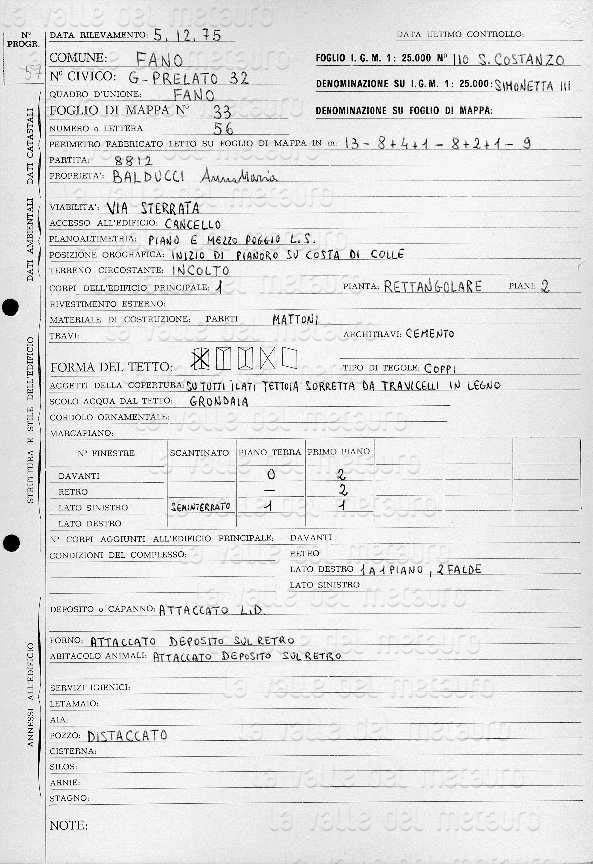 N° PROGR.
57
DATA RILEVAMENTO: 5.12.75 DATA ULTIMO CONTROLLO:
COMUNE: FANO FOGLIO I.G.M. 1: 25.000 N° 110 S. COSTANZO
N° CIVICO: G-PRELATO 32 DENOMINAZIONE SU I.G.M. 1: 25.000: SIMONETTA III
QUADRO D'UNIONE: FANO
FOGLIO DI MAPPA N° 33 DENOMINAZIONE SU FOGLIO DI MAPPA:
NUMERO o LETTERA 56
PERIMETRO FABBRICATO LETTO SU FOGLIO DI MAPPA IN m. 13-8+4+1-8+2+1-9
PARTITA: 8812
PROPRIETA': BALDUCCI AnnaMaria
DATI CATASTALI
VIABILITA': VIA STERRATA
ACCESSO ALL'EDIFICIO: CANCELLO
PLANOALTIMETRIA: PIANO E MEZZO POGGIO L.S.
POSIZIONE OROGRAFICA: INIZIO DI PIANORO SU COSTA DI COLLE
TERRENO CIRCOSTANTE: INCOLTO
DATI AMBIENTALI
CORPI DELL'EDIFICIO PRINCIPALE: 1 PIANTA: RETTANGOLARE PIANI: 2
RIVESTIMENTO ESTERNO:
MATERIALE DI COSTRUZIONE: PARETI MATTONI
TRAVI: ARCHITRAVI: CEMENTO
FORMA DEL TETTO: TIPO DI TEGOLE: COPPI
AGGETTI DELLA COPERTURA: SU TUTTI I LATI TETTOIA SORRETTA DA TRAVICELLI IN LEGNO
SCOLO ACQUA DAL TETTO: GRONDAIA
CORDOLO ORNAMENTALE:
MARCAPIANO:
N° FINESTRE SCANTINATO PIANO TERRA PRIMO PIANO
DAVANTI 0 2
RETRO — 2
LATO SINISTRO SEMINTERRATO 1 1
LATO DESTRO
STRUTTURA E STILE DELL'EDIFICIO
N° CORPI AGGIUNTI ALL'EDIFICIO PRINCIPALE: DAVANTI
CONDIZIONI DEL COMPLESSO: RETRO
LATO DESTRO 1 A 1 PIANO, 2 FALDE
LATO SINISTRO
DEPOSITO o CAPANNO: ATTACCATO L.D.
FORNO: ATTACCATO DEPOSITO SUL RETRO
ABITACOLO ANIMALI: ATTACCATO DEPOSITO SUL RETRO
SERVIZI IGIENICI:
LETAMAIO:
AIA:
POZZO: DISTACCATO
CISTERNA:
SILOS:
ARNIE:
STAGNO:
ANNESSI ALL'EDIFICIO
NOTE:
la valle del metauro